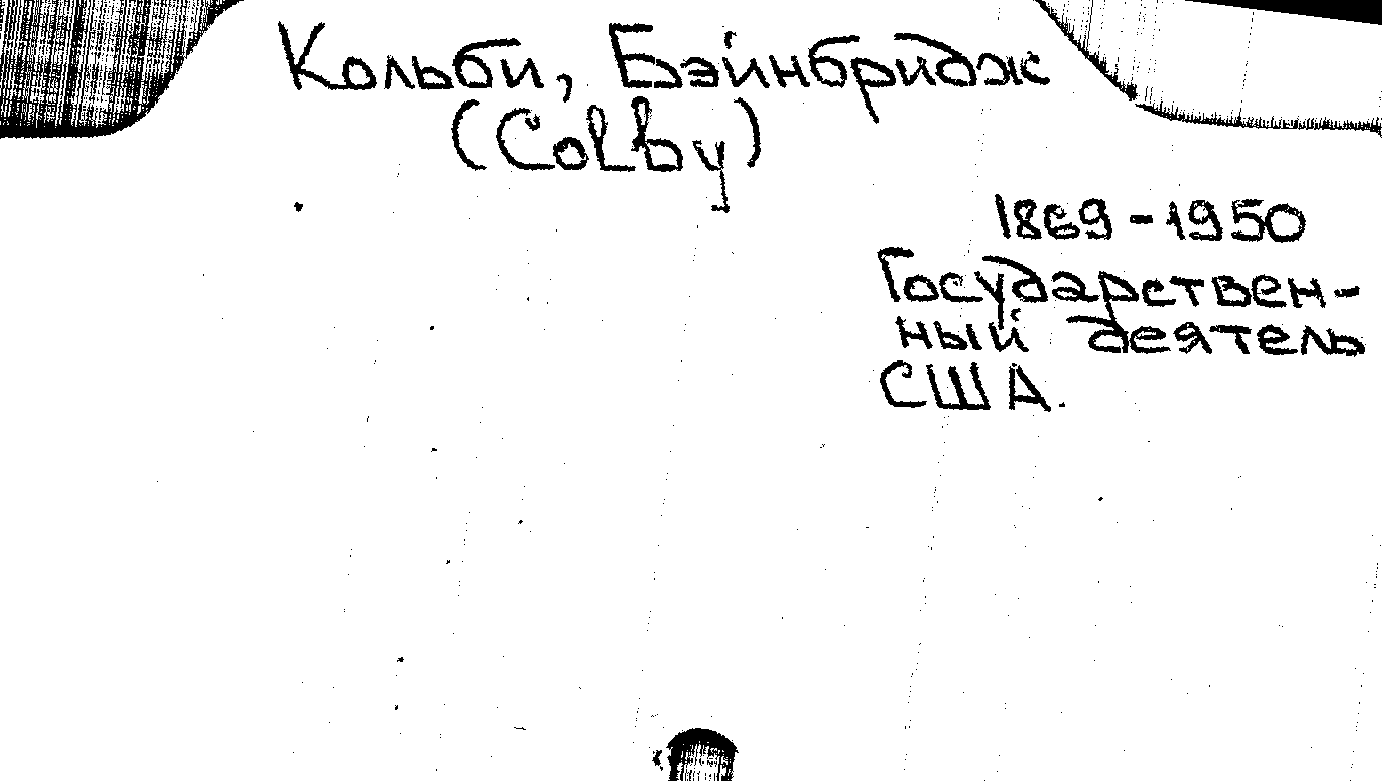 Кольби, Бэйнбридж
(Colby)
1869-1950
Государствен-
ный деятель
США.